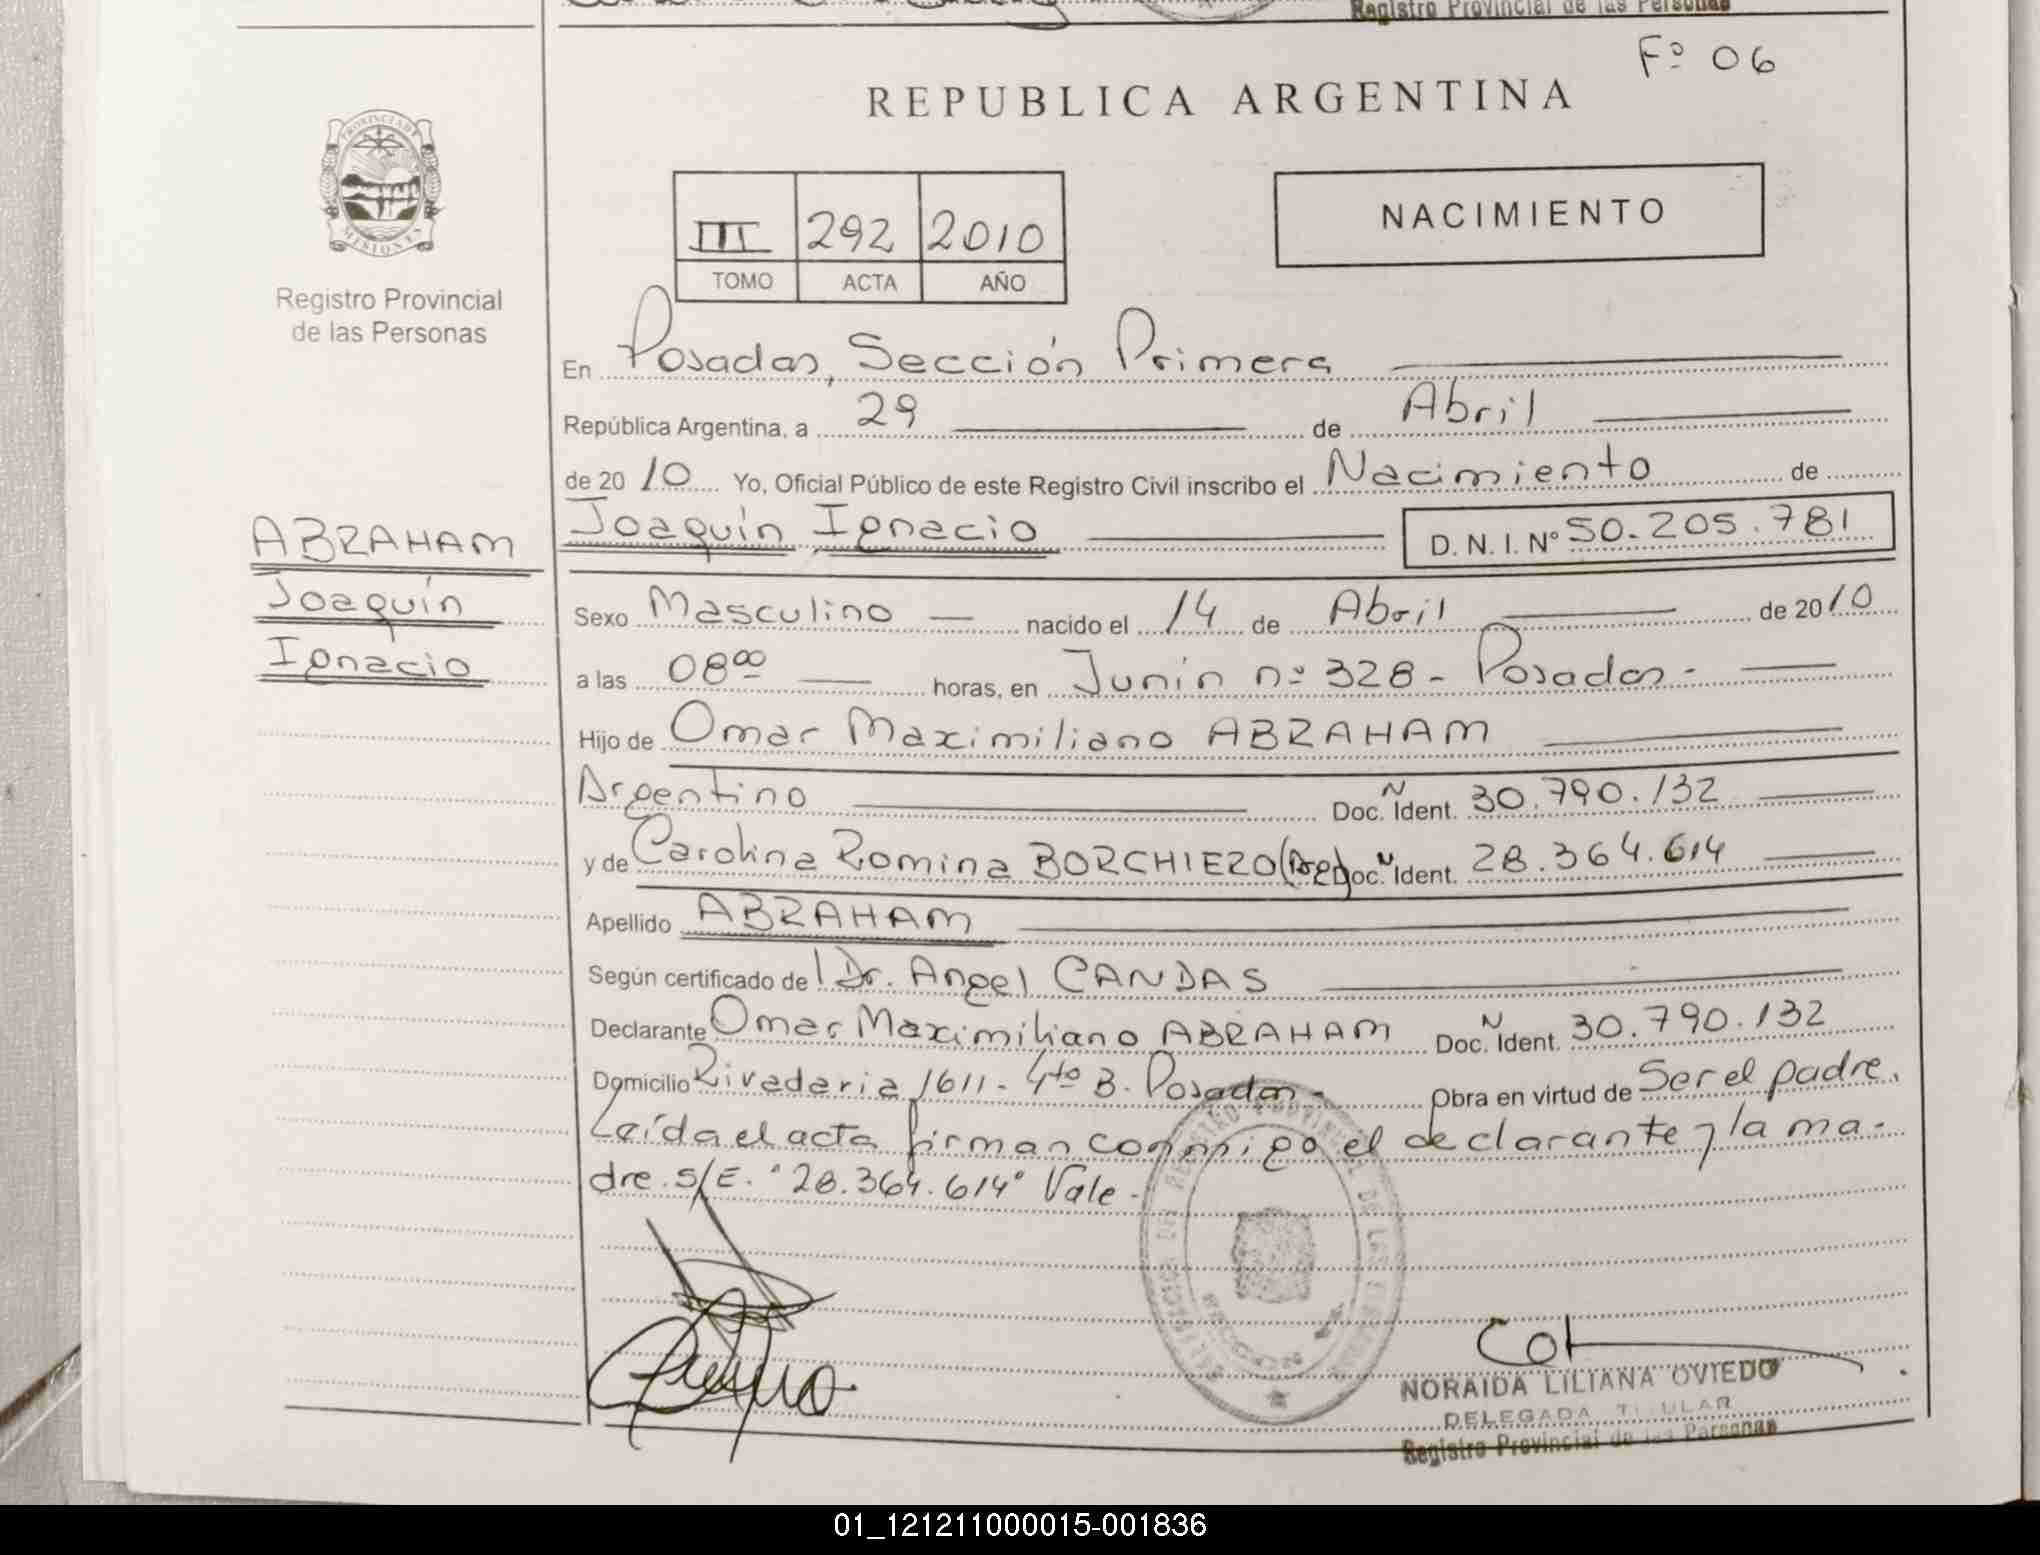 Registro Provincial de las Personas
Fº 06
REPUBLICA ARGENTINA
PROVINCIA DE
MISIONES
Registro Provincial
de las Personas
III 292 2010
TOMO ACTA AÑO
NACIMIENTO
En Posadas, Sección Primera
República Argentina, a 29 de Abril
de 2010 Yo, Oficial Público de este Registro Civil inscribo el Nacimiento de
Joaquín Ignacio D. N. I. Nº 50.205.781
ABRAHAM
Joaquín
Ignacio
Sexo Masculino nacido el 14 de Abril de 2010
a las 08ºº horas, en Junín nº 328 - Posadas -
Hijo de Omar Maximiliano ABRAHAM
Argentino Doc. N Ident. 30.790.132
y de Carolina Romina BORCHIERO (Arg) Doc. N Ident. 28.364.614
Apellido ABRAHAM
Según certificado de l Dr. Angel CANDAS
Declarante Omar Maximiliano ABRAHAM Doc. N Ident. 30.790.132
Domicilio Rivadavia 1611 - 4to B. Posadas - Obra en virtud de Ser el padre.
Leída el acta firman conmigo el declarante y la ma-
dre. S/E. "28.364.614" Vale -
NORAIDA LILIANA OVIEDO
DELEGADA TITULAR
Registro Provincial de las Personas
01_121211000015-001836